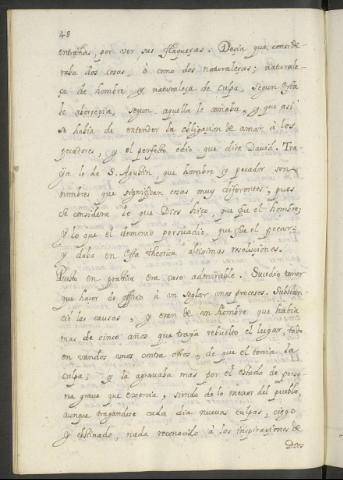 48
entrañas, por ver sus flaquezas. Decia que conside
raba dos cosas, ò como dos naturalezas; naturale
za de hombre, y naturaleza de culpa, segun esta
le aborrecia, segun aquella le amaba, y que asi
se habia de entender la obligacion de amar à los
pecadores, y el perfecto odio que dice David. Tra
ìa lo de S. Agustin, que hombre, y pecador son
nombres que significan cosas muy diferentes, pues
se considera lo que Dios hizo, que fue el hombre;
y lo que el demonio persuadiò, que fue el pecar:
y daba en esta theorica altisimas resoluciones.
Puesta en practica era caso admirable. Sucediò tener
que hacer de oficio à un seglar unos procesos. Substan
ciò las causas, y eran de un hombre que habia
mas de cinco años que traìa rebuelto el lugar, todo
en vandos unos contra otros, de que el tenìa la
culpa; y la agravaba mas por el estado de perso
na grave que exercia, siendo de lo mejor del pueblo,
aunque tragandose cada dia nuevas culpas, ciego
y obstinado, nada reconocido à los inspiraciones de
Dios